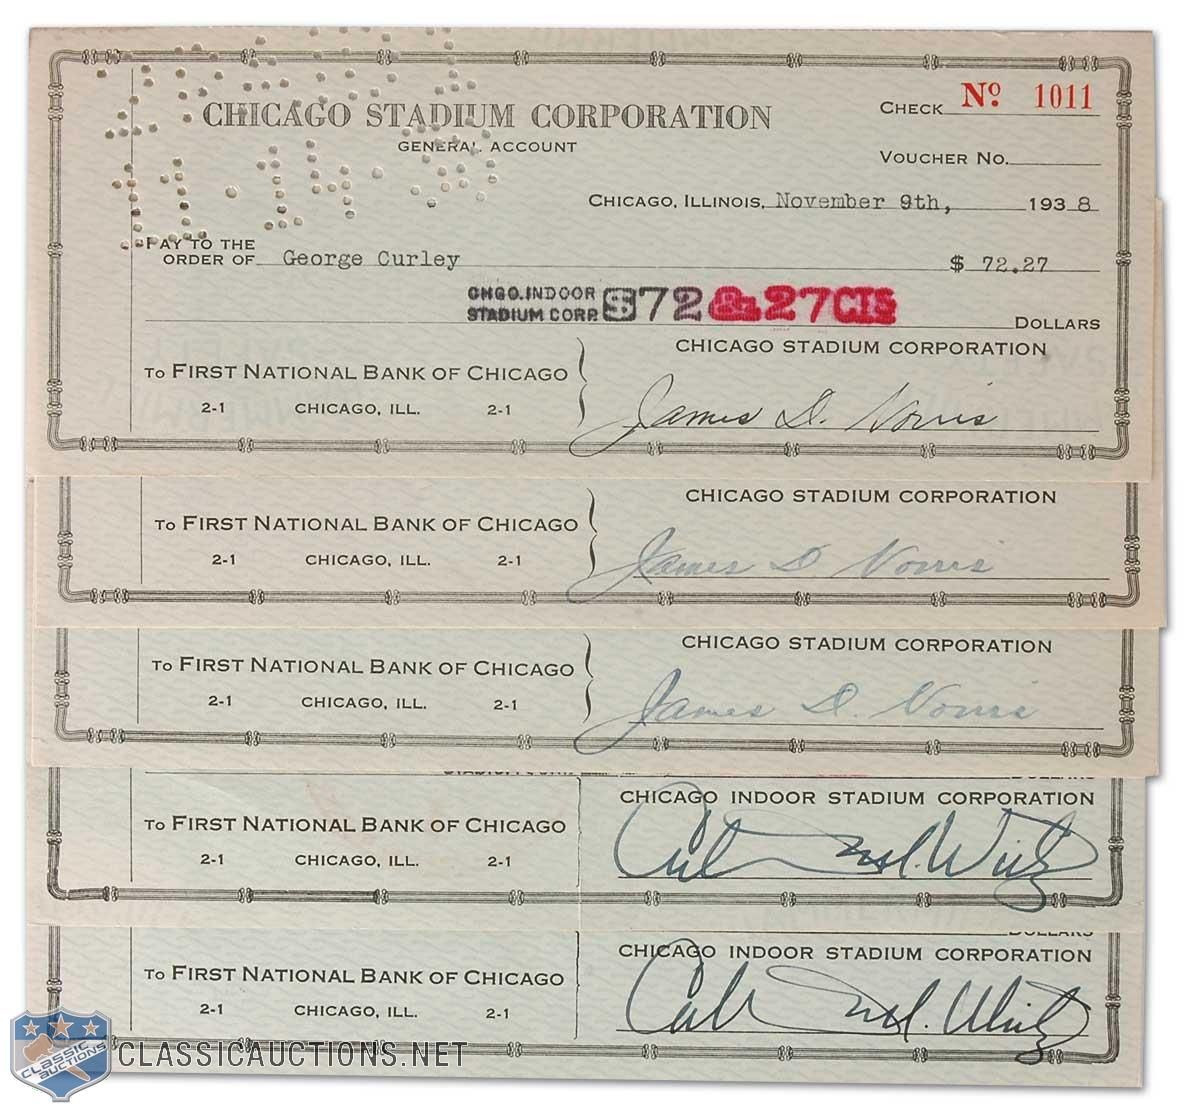 CHICAGO STADIUM CORPORATION
GENERAL ACCOUNT
CHECK Nº 1011
VOUCHER NO.
CHICAGO, ILLINOIS, November 9th, 1938
11·14·
PAY TO THE
ORDER OF George Curley $ 72.27
CHGO. INDOOR
STADIUM CORP. $72 & 27 CTS
DOLLARS
CHICAGO STADIUM CORPORATION
TO FIRST NATIONAL BANK OF CHICAGO
2-1 CHICAGO, ILL. 2-1
James D. Norris
CHICAGO STADIUM CORPORATION
TO FIRST NATIONAL BANK OF CHICAGO
2-1 CHICAGO, ILL. 2-1
James D. Norris
CHICAGO STADIUM CORPORATION
TO FIRST NATIONAL BANK OF CHICAGO
2-1 CHICAGO, ILL. 2-1
James D. Norris
DOLLARS
CHICAGO INDOOR STADIUM CORPORATION
TO FIRST NATIONAL BANK OF CHICAGO
2-1 CHICAGO, ILL. 2-1
Arthur M. Wirtz
DOLLARS
CHICAGO INDOOR STADIUM CORPORATION
TO FIRST NATIONAL BANK OF CHICAGO
2-1 CHICAGO, ILL. 2-1
Arthur M. Wirtz
CLASSIC AUCTIONS
CLASSICAUCTIONS.NET